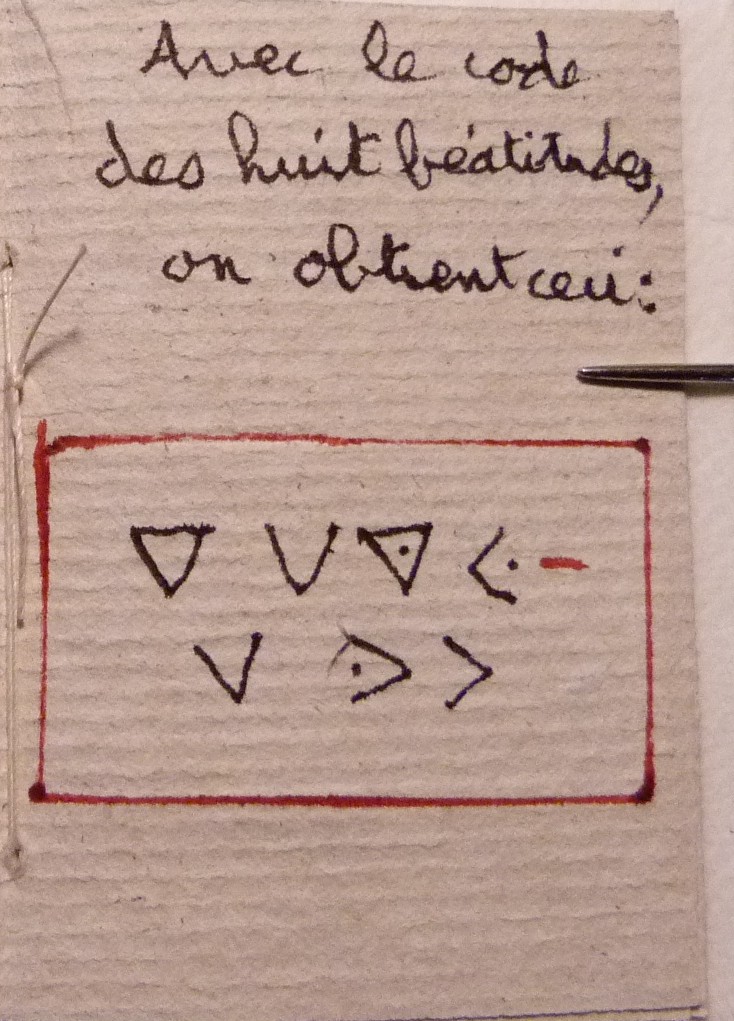 Avec le code
des huit béatitudes,
on obtient ceci :